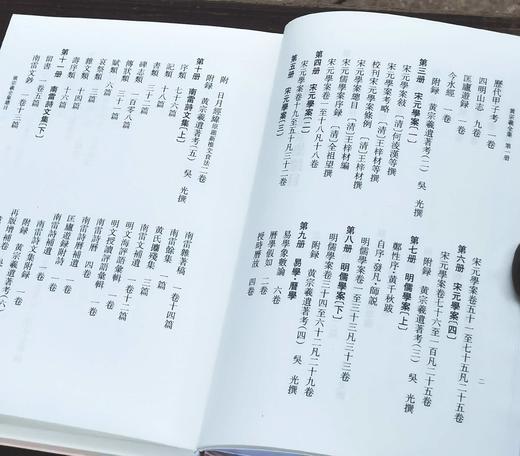 黃宗羲全集 第一册
二
歷代甲子考 一卷
四明山志 九卷
匡廬遊錄 一卷
今水經 一卷
附錄 黃宗羲遺著考（二） 吳 光撰
第三册 宋元學案（一）
宋元學案敍 ［清］何凌漢等撰
宋元學案考略 ［清］王梓材等撰
校刊宋元學案條例 ［清］王梓材撰
宋元學案總目 ［清］王梓材編
宋元儒學案序錄 ［清］全祖望撰
宋元學案卷一至十八凡十八卷
第四册 宋元學案（二）
宋元學案卷十九至五十凡三十二卷
第五册 宋元學案（三）
宋元學案卷五十一至七十五凡二十五卷
第六册 宋元學案（四）
宋元學案卷七十六至一百凡二十五卷
附錄 黃宗羲遺著考（三） 吳 光撰
第七册 明儒學案（上）
鄭性序·黃千秋跋
自序·發凡·師說
明儒學案卷一至三十三凡三十三卷
第八册 明儒學案（下）
明儒學案卷三十四至六十二凡二十九卷
附錄 黃宗羲遺著考（四） 吳 光撰
第九册 易學·曆學
易學象數論 六卷
曆學假如 二卷
授時曆故 四卷
附 日月經緯 二卷
附錄 黃宗羲遺著考（五） 吳 光撰
第十册 南雷詩文集（上）
序類 七十六篇
記類 十八篇
書類
碑志類
傳狀類 三十一篇
哀祭類 六篇
雜文類 三篇
壽序類 十四篇
南雷文鈔
留書 一卷
第十一册 南雷詩文集（下）
南雷雜著稿 一卷十四篇
黃氏攟殘集 三篇
南雷文補遺 三篇
明文海評語彙輯 一卷
明文授讀評語彙輯 一卷
南雷詩曆 四卷
南雷詩曆補遺 一卷
匡廬遊錄附詩 一卷
南雷詩文集附錄
附錄 黃宗羲遺著考（六）
再版增補卷